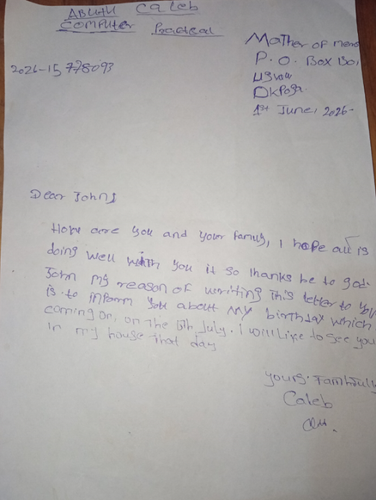 ABUTU Caleb
COMPUTER Practical
Mother of mercy
P. O. Box Bo,
2026-15778093
Okpoga
1st June, 2026-
Dear John,
How are you and your family, I hope all is
doing well with you if so thanks be to god.
John my reason of writing this letter to you
is to inform you about my birthday which
coming on, on the 5th July. I will like to see you
in my house that day
Yours Faithfully
Caleb